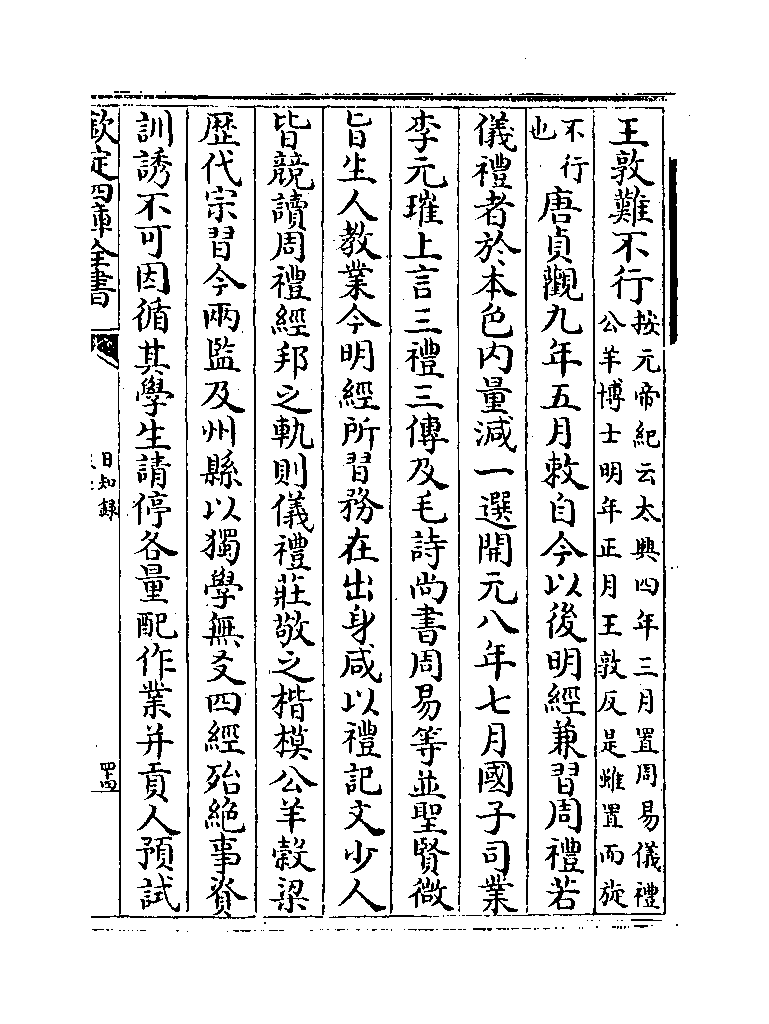 王敦難不行按元帝紀云太興四年三月置周易儀禮公羊博士明年正月王敦反是雖置而旋
不行也唐貞觀九年五月敕自今以後明經兼習周禮若
儀禮者於本色内量減一選開元八年七月國子司業
李元璀上言三禮三傳及毛詩尚書周易等並聖賢微
旨生人教業今明經所習務在出身咸以禮記文少人
皆競讀周禮經邦之軌則儀禮莊敬之楷模公羊穀梁
歴代宗習今兩監及州縣以獨學無友四經殆絶事資
訓誘不可因循其學生請停各量配作業并貢人預試
欽定四庫全書
日知錄
四十四